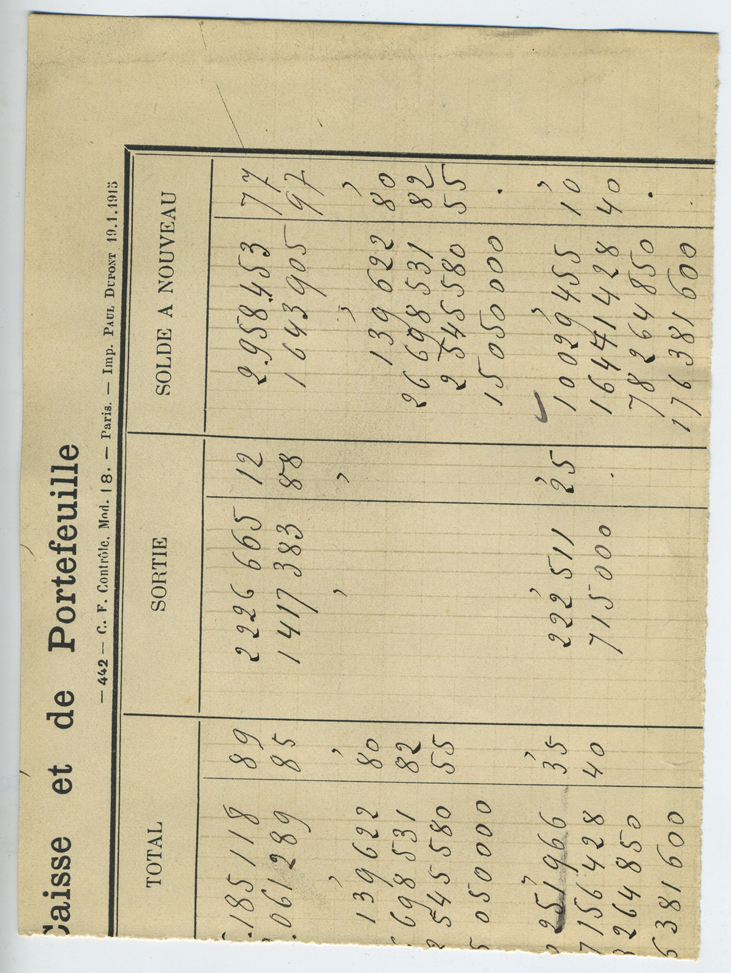 aisse et de Portefeuille
—442— C. F. Contrôle. Mod. 18. — Paris. — Imp. PAUL DUPONT 19.1.1913
TOTAL SORTIE SOLDE A NOUVEAU
.185118 89 2226 665 12 2.958.453 77
.061289 85 1417 383 88 1643905 97
139622 80 139622 80
698531 82 26698531 82
2545580 55 2545580 55
5050000 15050000
251966 35 222511 25 10029455 10
7156428 40 715000 16441428 40
264850 78264850
6381600 176381600